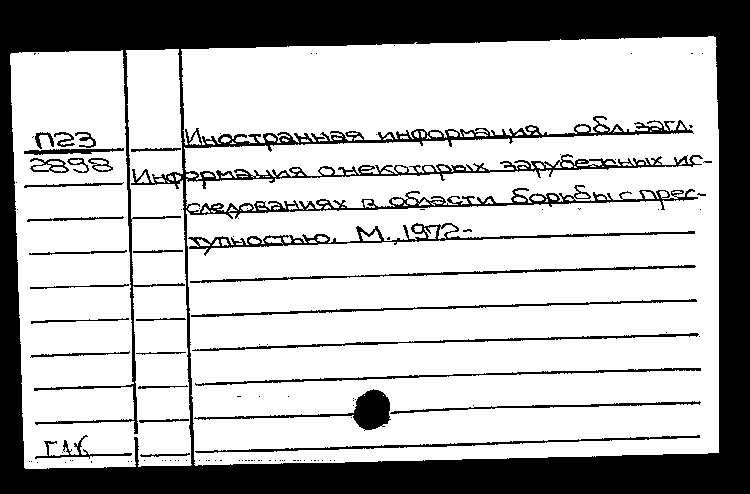 П23 Иностранная информация. обл. загл.
2898 Информация о некоторых зарубежных ис-
следованиях в области борьбы с прес-
тупностью. М., 1972-
ГАК